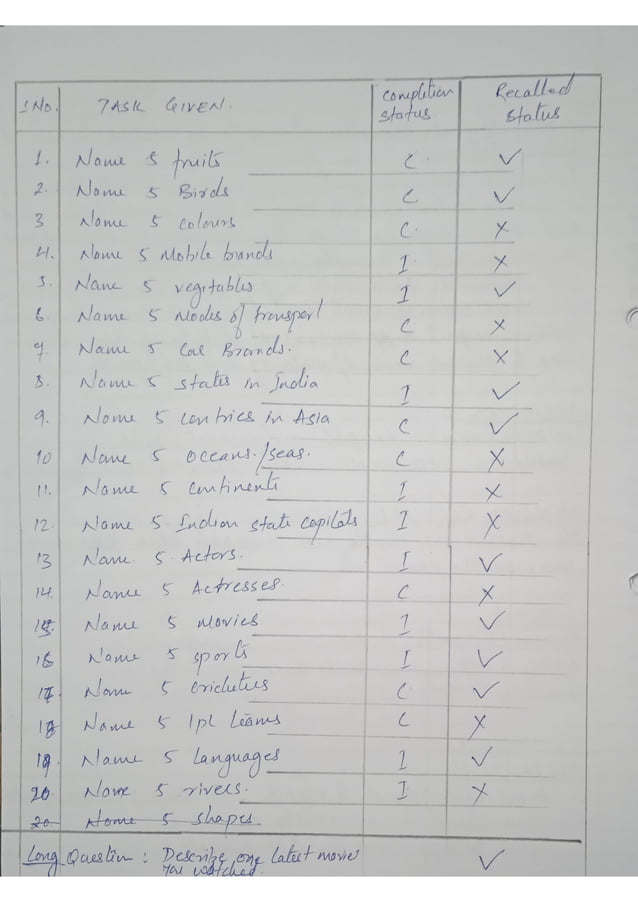 S No. TASK GIVEN. Completion Status. Recalled Status
1. Name 5 fruits C. ✓
2. Name 5 Birds C ✓
3 Name 5 colours C. ×
4. Name 5 Mobile brands I. ×
5. Name 5 vegitables I ✓
6. Name 5 Modes of transport C ×
7. Name 5 Car Brands. C ×
8. Name 5 states in India I ✓
9. Name 5 Contries in Asia C ✓
10 Name 5 oceans./seas. C ×
11. Name 5 continents I ×
12. Name 5 Indian state capitals I ×
13 Name 5 Actors. I ✓
14. Name 5 Actresses. C ×
15. Name 5 movies I ✓
16 Name 5 sports I ✓
17. Name 5 cricketers C. ✓
18 Name 5 Ipl teams C ×
19. Name 5 languages I ✓
20. Name 5 rivers. I ×
20. Name 5 shapes.
Long Question : Describe one latest movie ✓
You watched.